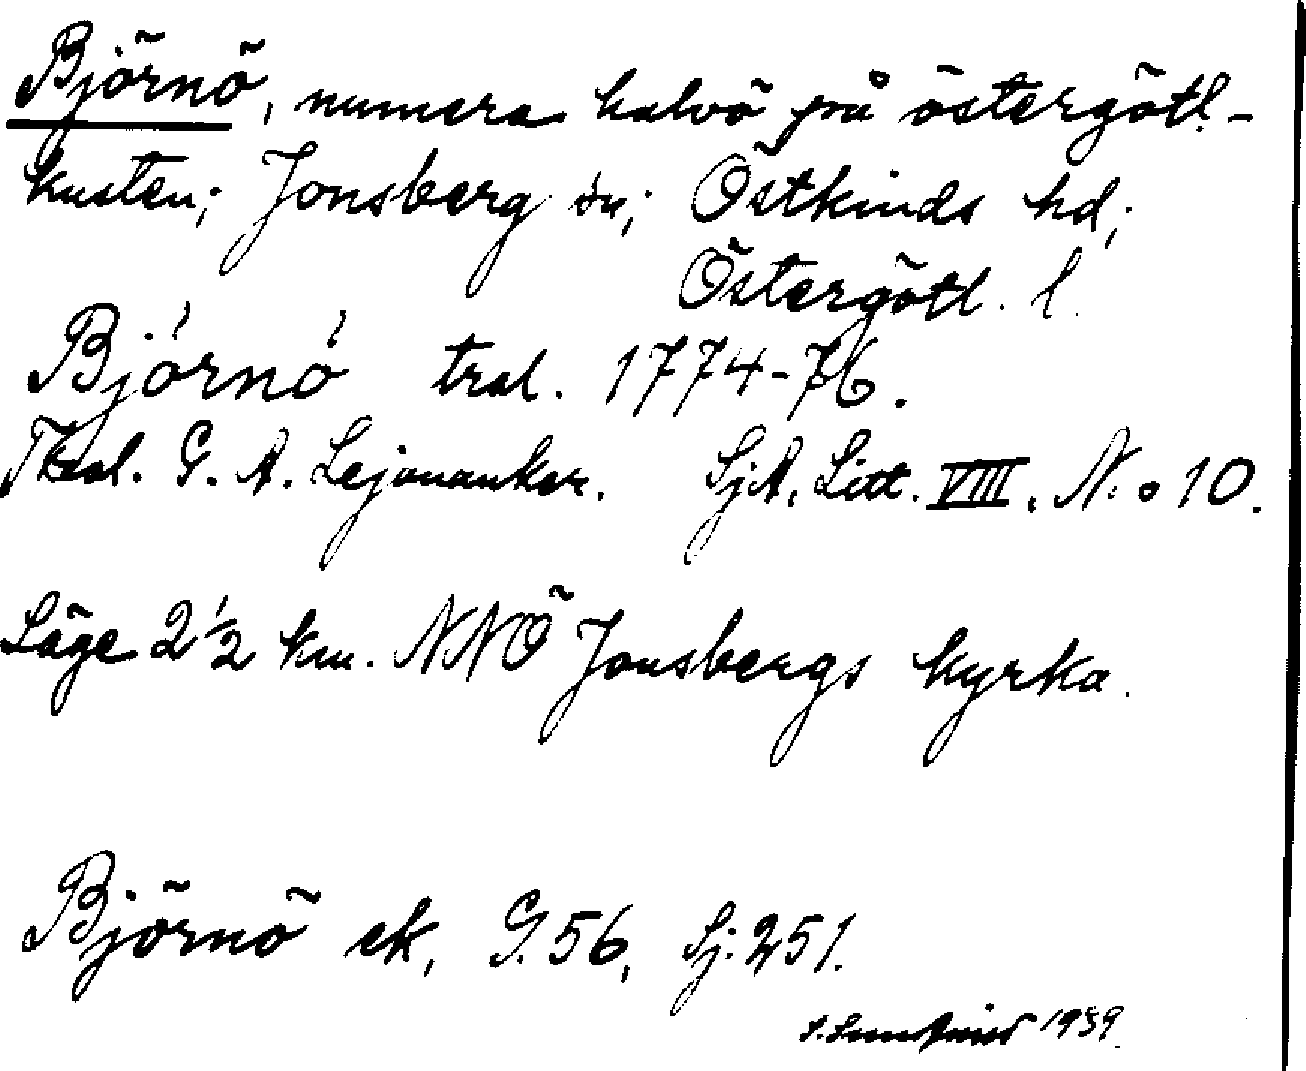 Björnö, numera halvö på östergötl.-
kusten; Jonsberg sn; Östkinds hd;
Östergötl. l.
Björnö tral. 1774-76.
Theol. G. A. Lejonanker. SjA. Litt. VIII. N:o 10.
Läge 2 1/2 km. NNÖ Jonsbergs kyrka.
Björnö ek, G. 56, Sj. 251.
1939